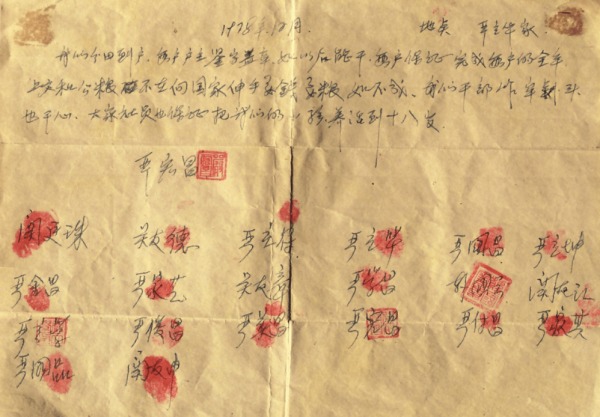 1978年12月 地点 严立华家
我们分田到户，每户户主签字盖章，如以后能干，每户保证完成每户的全年
上交和公粮，不在向国家伸手要钱要粮。如不成，我们干部作牢刹头
也干心，大家社员也保证把我们的小孩养活到十八岁。
严宏昌
关廷珠 关友德 严立符 严立华 严国昌 严立坤
严金昌 严家芝 关友章 严学昌 韩国云 关友江
严立学 严俊昌 严美昌 严宏昌 严付昌 严家其
严国品 关友申